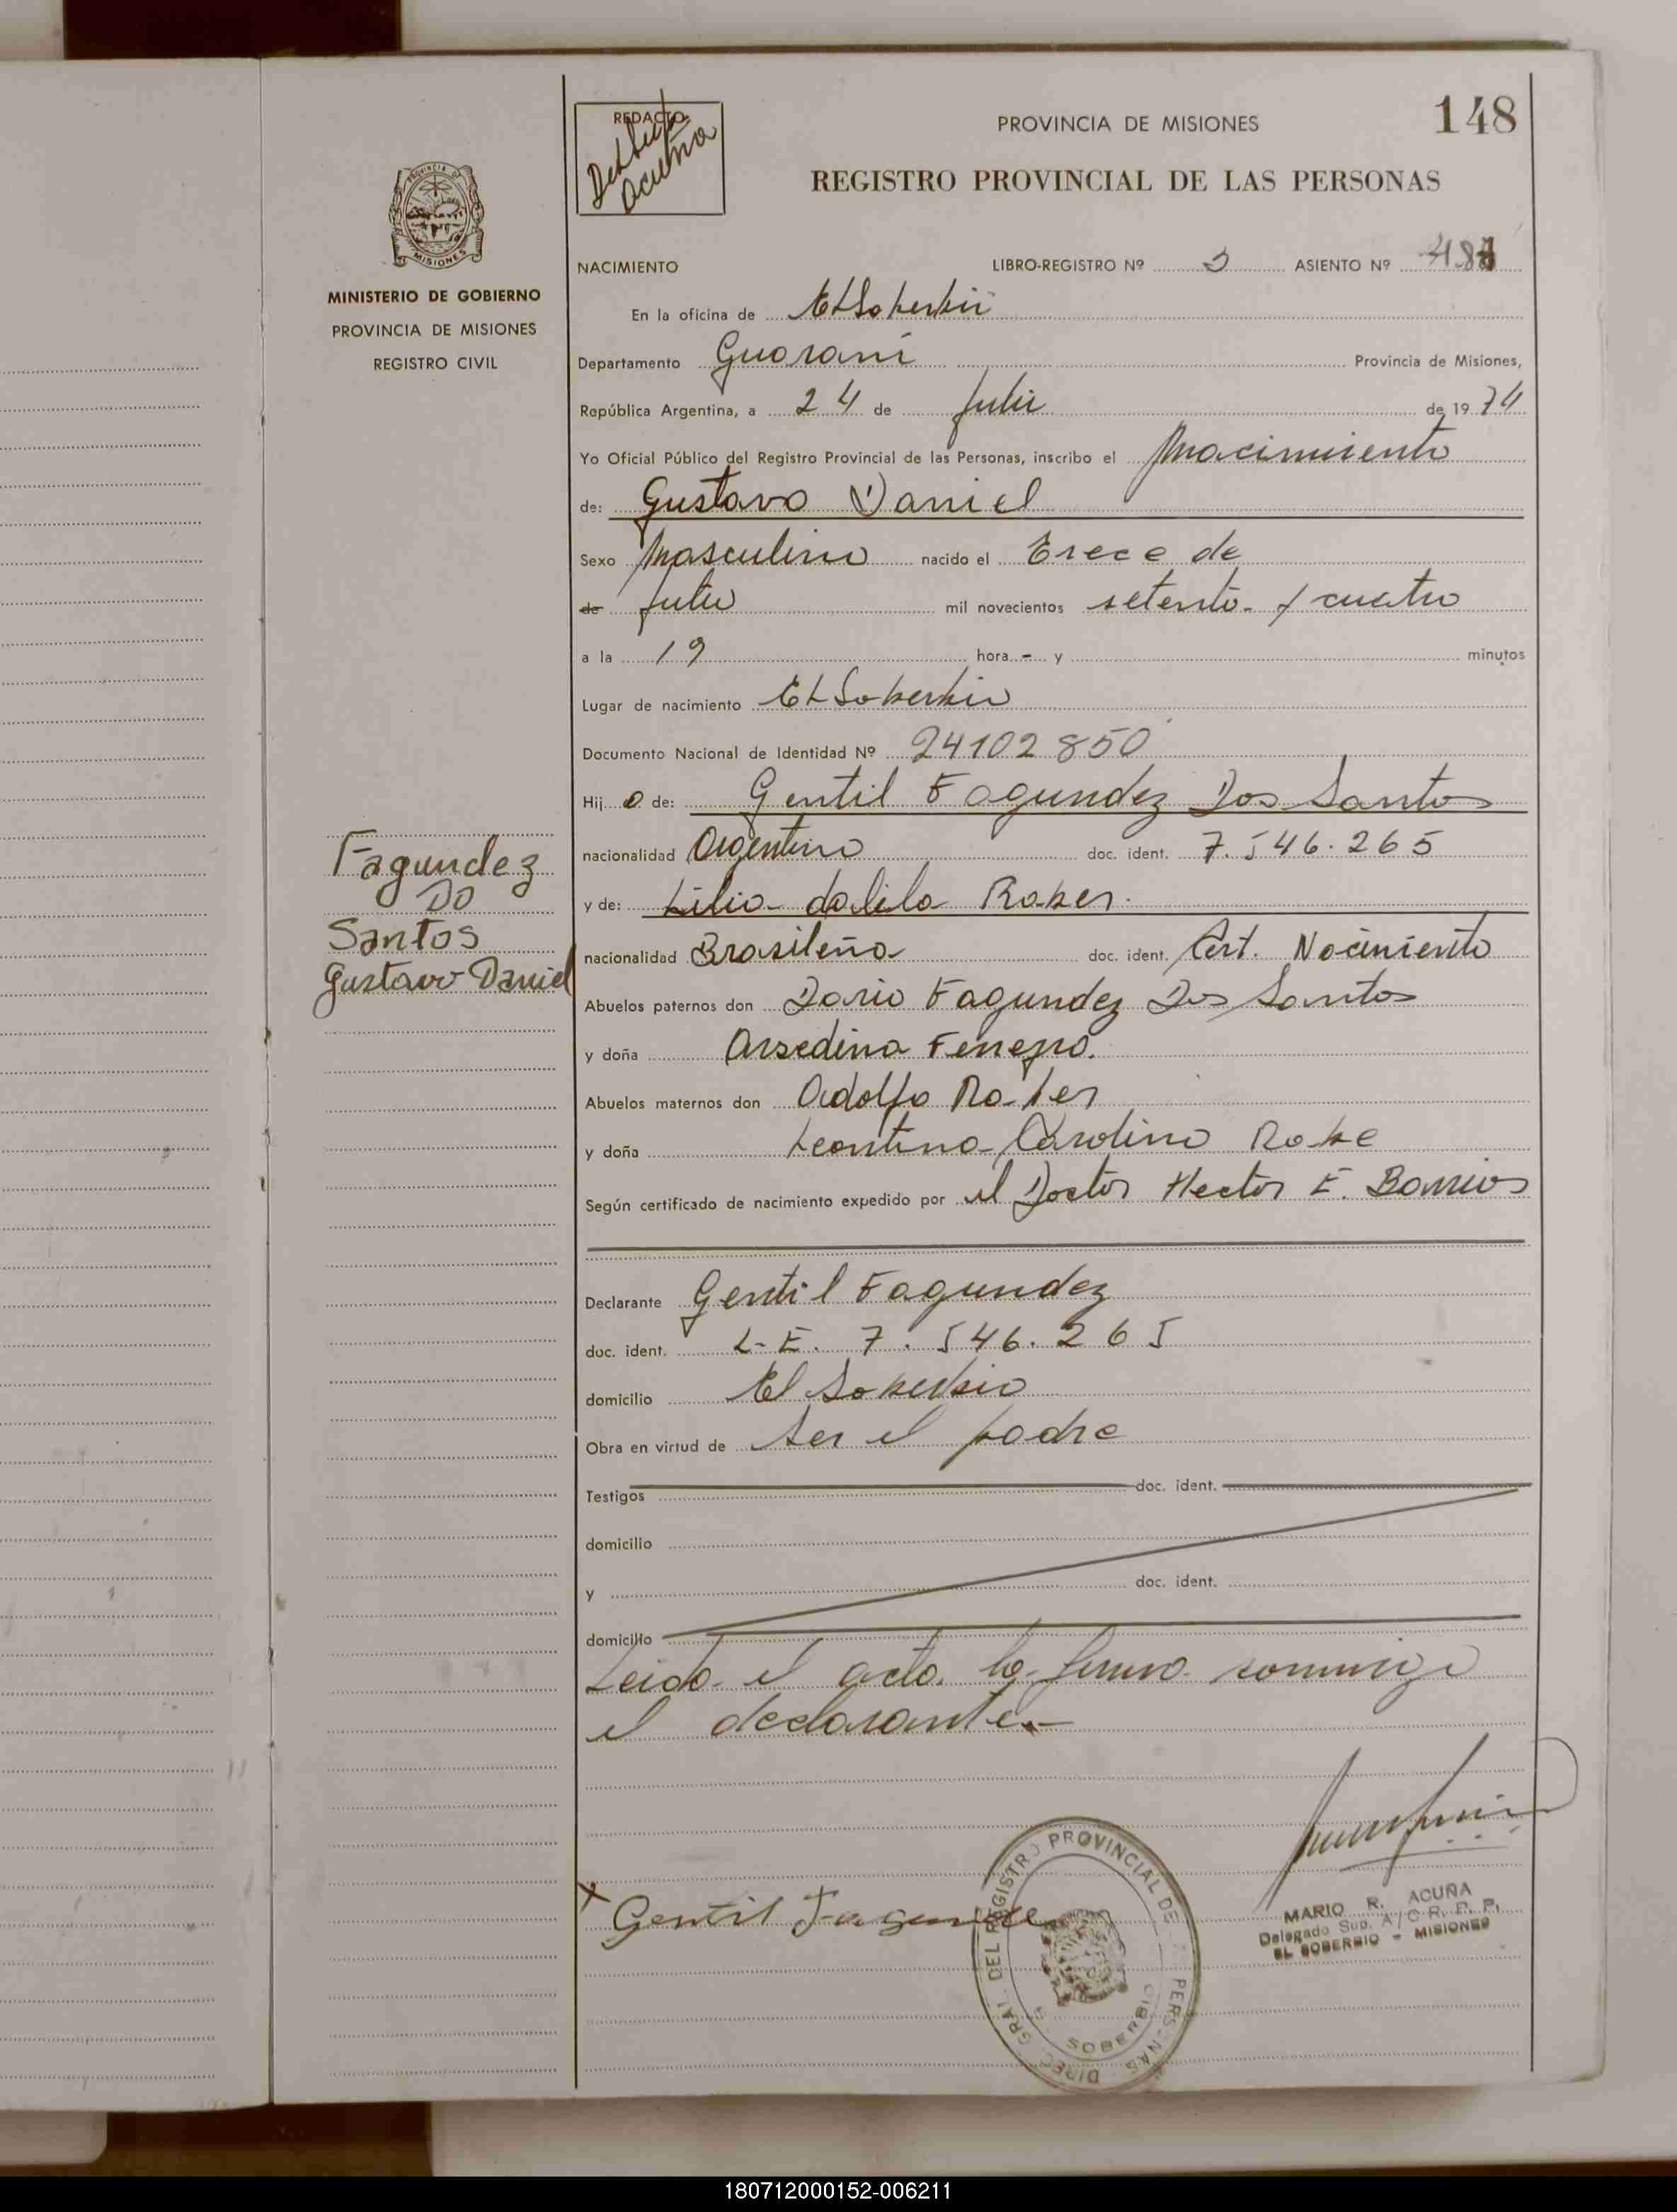 REDACTO
Acuña
PROVINCIA DE MISIONES
148
REGISTRO PROVINCIAL DE LAS PERSONAS
PROVINCIA DE
MISIONES
MINISTERIO DE GOBIERNO
PROVINCIA DE MISIONES
REGISTRO CIVIL
NACIMIENTO LIBRO-REGISTRO Nº 3 ASIENTO Nº
En la oficina de El Soberbio
Departamento Guarani Provincia de Misiones,
República Argentina, a 24 de Julio de 19 74
Yo Oficial Público del Registro Provincial de las Personas, inscribo el Nacimiento
de: Gustavo Daniel
Sexo Masculino nacido el Trece de
de Julio mil novecientos setenta y cuatro
a la 19 hora - y minutos
Lugar de nacimiento El Soberbio
Documento Nacional de Identidad Nº 24102850
Hij o de: Gentil Fagundez Dos Santos
nacionalidad Argentino doc. ident. 7.546.265
y de: Lilia dalila Raber.
nacionalidad Brasileña doc. ident. Cert. Nacimiento
Abuelos paternos don Dario Fagundez Dos Santos
y doña Arsedina
Abuelos maternos don Adolfo Raber
y doña Leontina Carolina Rabe
Según certificado de nacimiento expedido por el Doctor Hector E. Barrios
Fagundez
Do
Santos
Gustavo Daniel
Declarante Gentil Fagundez
doc. ident. L-E. 7.546.265
domicilio El Soberbio
Obra en virtud de Ser el padre
Testigos doc. ident.
domicilio
y doc. ident.
domicilio
Leida el acta la firma conmigo
el declarante.-
x Gentil Fagunde
DIREC. GRAL. DEL REGISTRO PROVINCIAL DE PERSONAS
SOBERBIO
MARIO R. ACUÑA
Delegado Sup. A/C R. P. P.
EL SOBERBIO - MISIONES
180712000152-006211